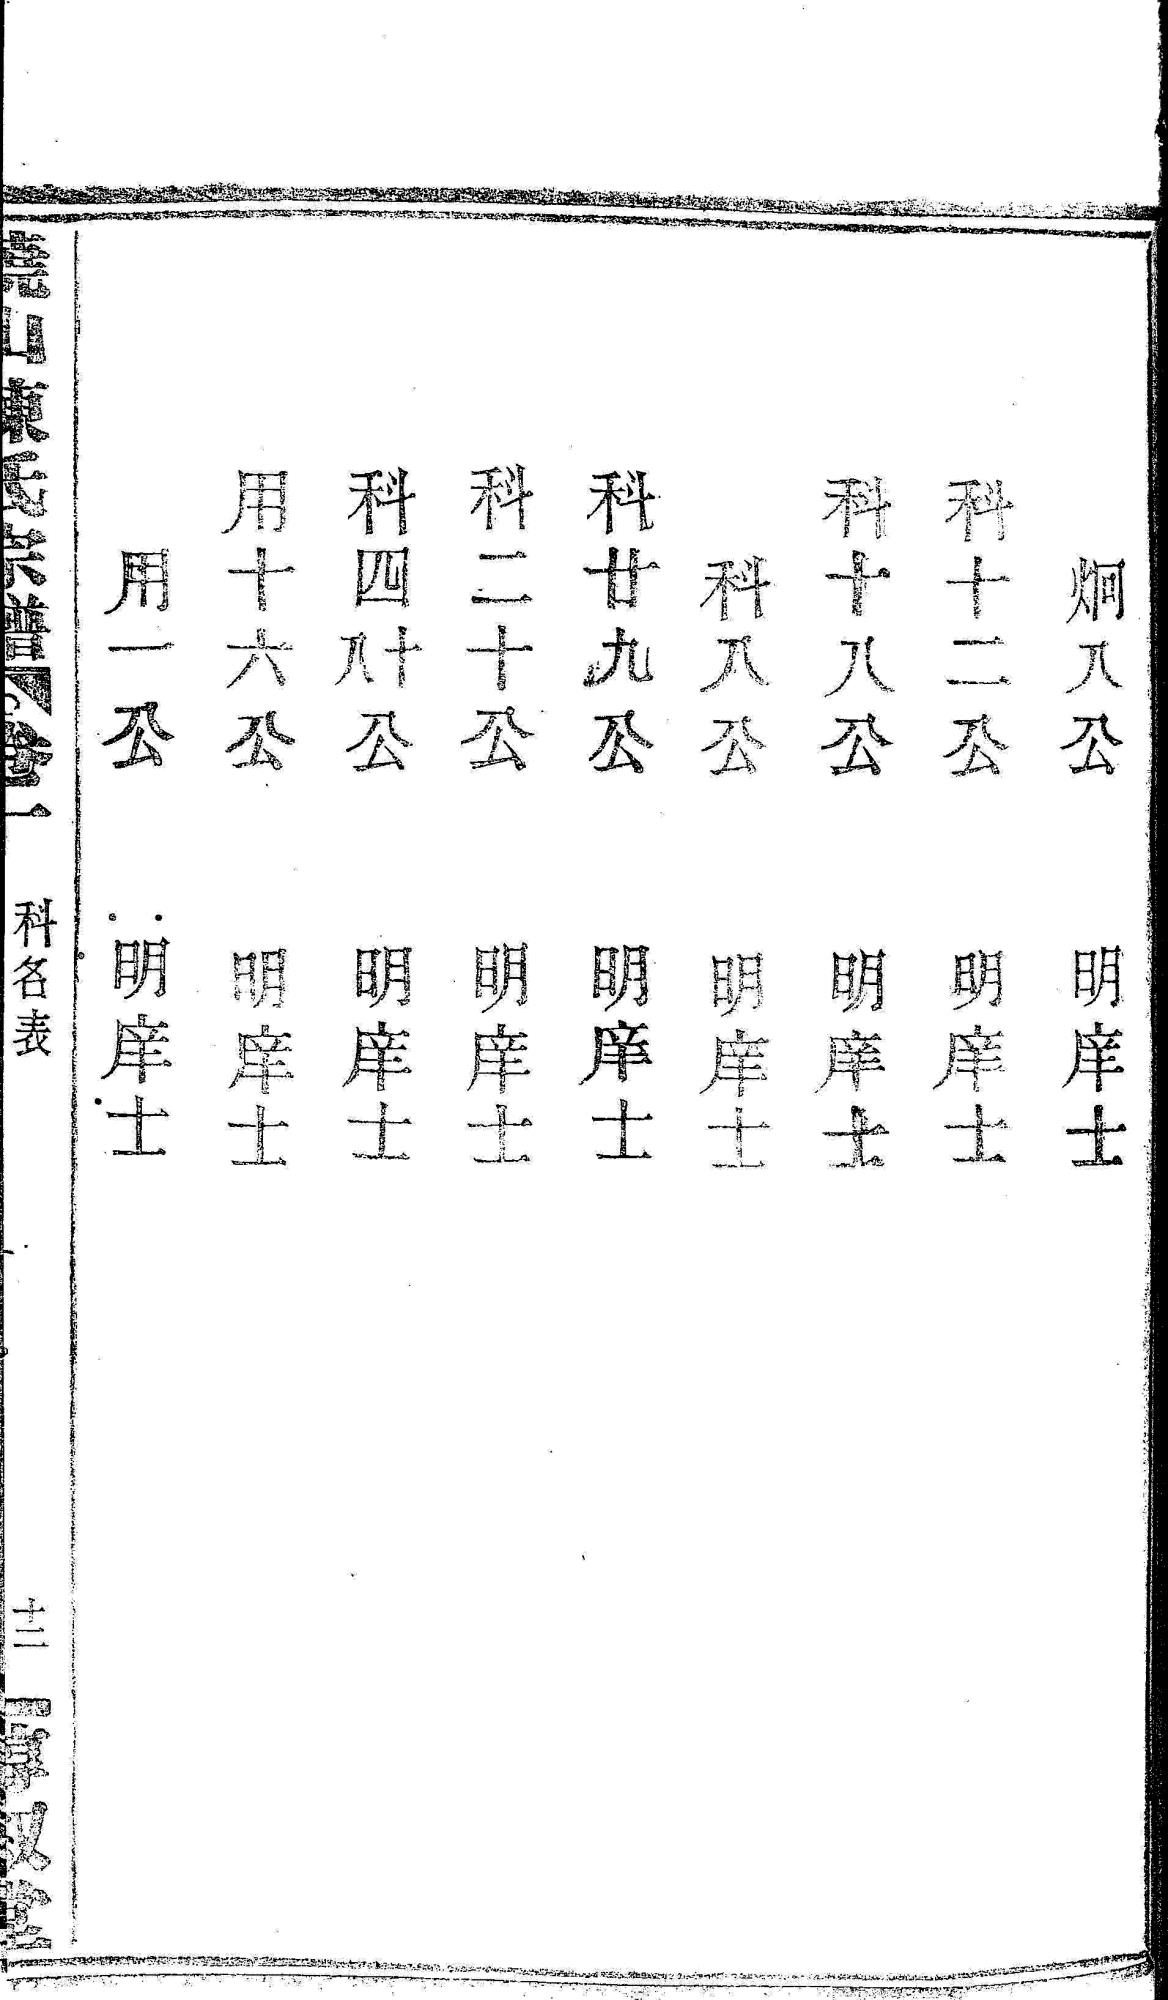 炯八公　明庠士
科十二公　明庠士
科十八公　明庠士
科八公　明庠士
科廿九公　明庠士
科二十公　明庠士
科四十八公　明庠士
用十六公　明庠士
用一公　明庠士
山東氏宗譜　卷一　科名表　十二　敘堂